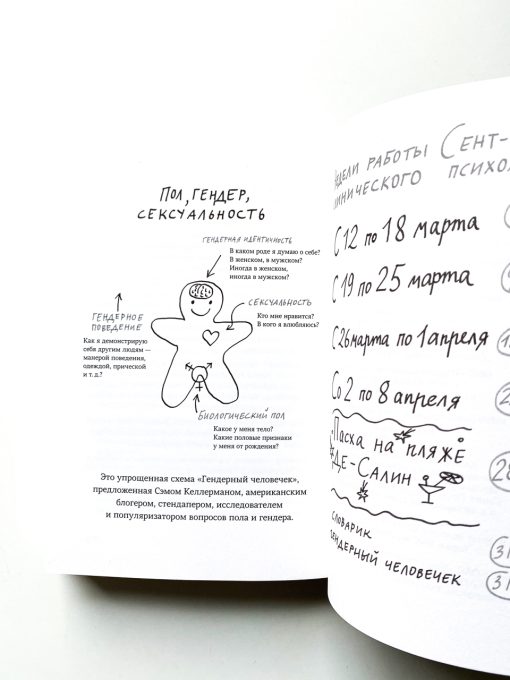 Пол, гендер,
сексуальность
гендерная идентичность
В каком роде я думаю о себе?
В женском, в мужском?
Иногда в женском,
иногда в мужском?
сексуальность
Кто мне нравится?
В кого я влюбляюсь?
гендерное
поведение
Как я демонстрирую
себя другим людям —
манерой поведения,
одеждой, прической
и т. д.?
биологический пол
Какое у меня тело?
Какие половые признаки
у меня от рождения?
Это упрощенная схема «Гендерный человечек»,
предложенная Сэмом Келлерманом, американским
блогером, стендапером, исследователем
и популяризатором вопросов пола и гендера.
недели работы Сент-
инического психо
С 12 по 18 марта
С 19 по 25 марта
С 26 марта по 1 апреля
Со 2 по 8 апреля
Пасха на пляже
Де-Салин
28
словарик
31
гендерный человечек
31